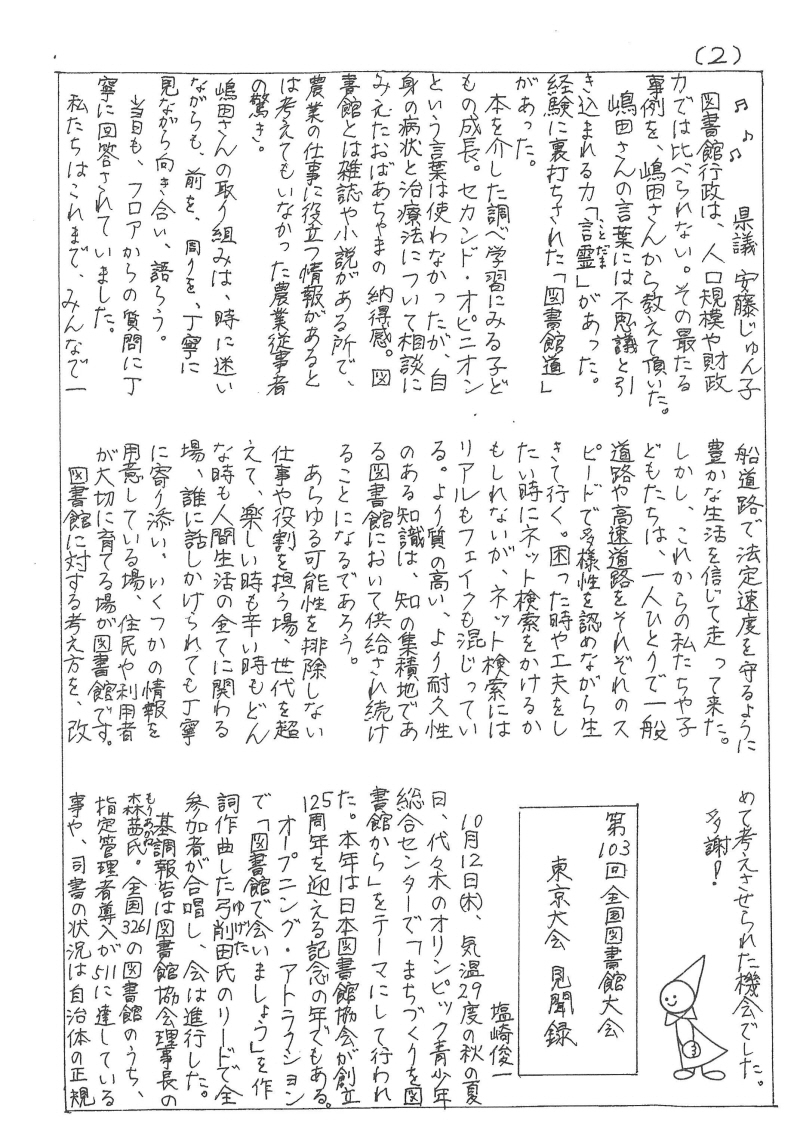 (2)
♬ ♪ ♫　県議 安藤じゅん子
図書館行政は、人口規模や財政
力では比べられない。その最たる
事例を、嶋田さんから教えて頂いた。
嶋田さんの言葉には不思議と引
き込まれる力「言霊」があった。
ことだま
経験に裏打ちされた「図書館道」
があった。
本を介した調べ学習にみる子ど
もの成長。セカンド・オピニオン
という言葉は使わなかったが、自
身の病状と治療法について相談に
みえたおばあちゃまの納得感。図
書館とは雑誌や小説がある所で、
農業の仕事に役立つ情報があると
は考えてもいなかった農業従事者
の驚き。
嶋田さんの取り組みは、時に迷い
ながらも、前を、周りを、丁寧に
見ながら向き合い、語らう。
当日も、フロアからの質問に丁
寧に回答されていました。
私たちはこれまで、みんなで一
船道路で法定速度を守るように
豊かな生活を信じて走って来た。
しかし、これからの私たちや子
どもたちは、一人ひとりで一般
道路や高速道路をそれぞれのス
ピードで多様性を認めながら生
きて行く。困った時や工夫をし
たい時にネット検索をかけるか
もしれないが、ネット検索には
リアルもフェイクも混じってい
る。より質の高い、より耐久性
のある知識は、知の集積地であ
る図書館において供給され続け
ることになるであろう。
あらゆる可能性を排除しない
仕事や役割を担う場、世代を超
えて、楽しい時も辛い時もどん
な時も人間生活の全てに関わる
場、誰に話しかけられても丁寧
に寄り添い、いくつかの情報を
用意している場、住民や利用者
が大切に育てる場が図書館です。
図書館に対する考え方を、改
めて考えさせられた機会でした。
多謝！
第103回全国図書館大会
東京大会 見聞録
塩崎俊一
10月12日(木)、気温29度の秋の夏
日、代々木のオリンピック青少年
総合センターで「まちづくりを図
書館から」をテーマにして行われ
た。本年は日本図書館協会が創立
125周年を迎える記念の年でもある。
オープニング・アトラクション
で「図書館で会いましょう」を作
詞作曲した弓削田氏のリードで全
ゆげた
参加者が合唱し、会は進行した。
基調報告は図書館協会理事長の
森茜氏。全国3261の図書館のうち、
もりあかね
指定管理者導入が511に達している
事や、司書の状況は自治体の正規